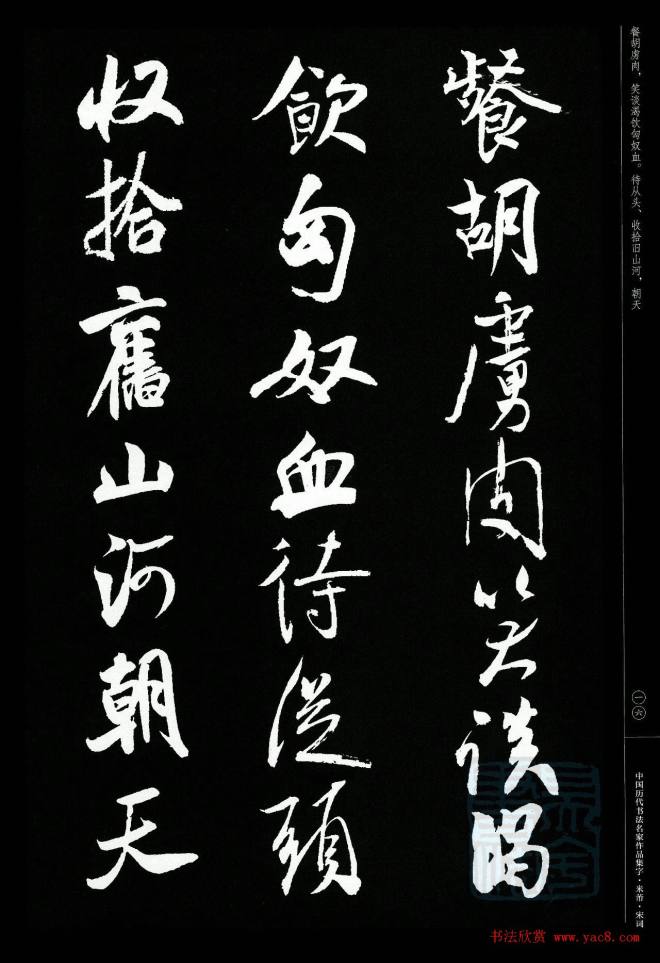 餐胡虜肉笑談渴
飲匈奴血待從頭
收拾舊山河朝天
餐胡虏肉，笑谈渴饮匈奴血。待从头、收拾旧山河，朝天
一六
中国历代书法名家作品集字·米芾·宋词
书法欣赏 www.yac8.com